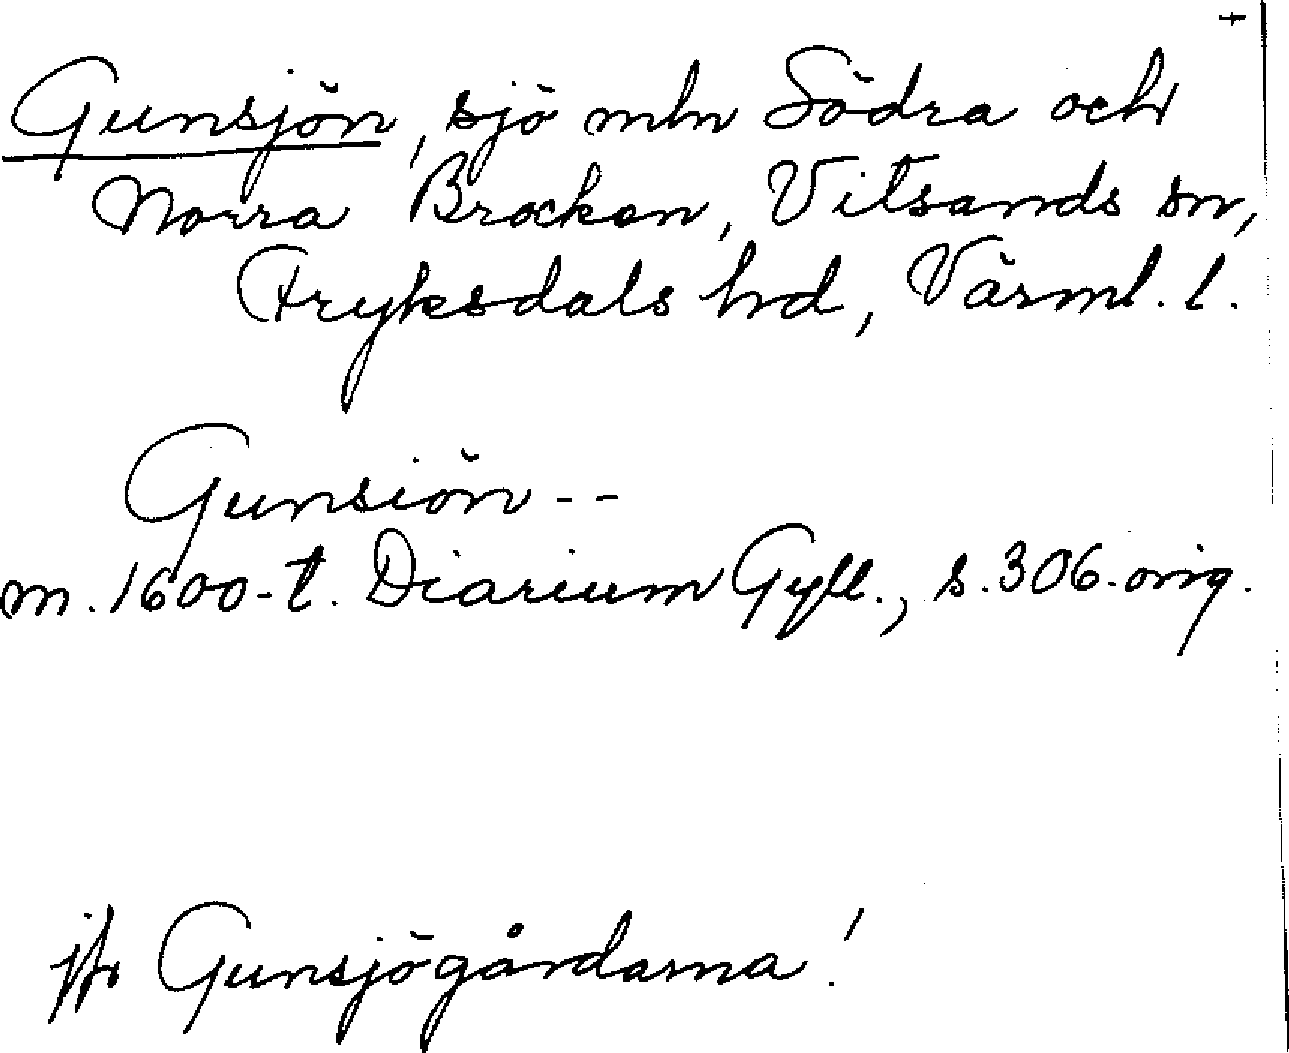 +
Gunsjön, sjö mln Södra och
Norra Brocken, Vitsands sn,
Fryksdals hd, Värml. l.
Gunsiön - -
m. 1600-t. Diarium Gyll., s. 306. orig.
jfr Gunsjögårdarna!